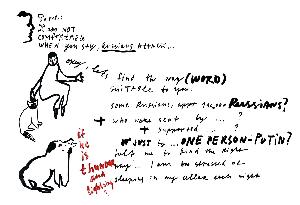 I am NOT
COMFORTABLE
WHEN you say, Russians attack...
okay, let's
find the way (WORD)
suitable to you.
some Russians,
RuSSIANS?
+ who were sent by ... ?
+ supported ... ?
or JUST to ... ONE PERSON - PUTIN?
me to find the right
way... I am so stressed
sleeping in my each night
if
he
is
thunder
and